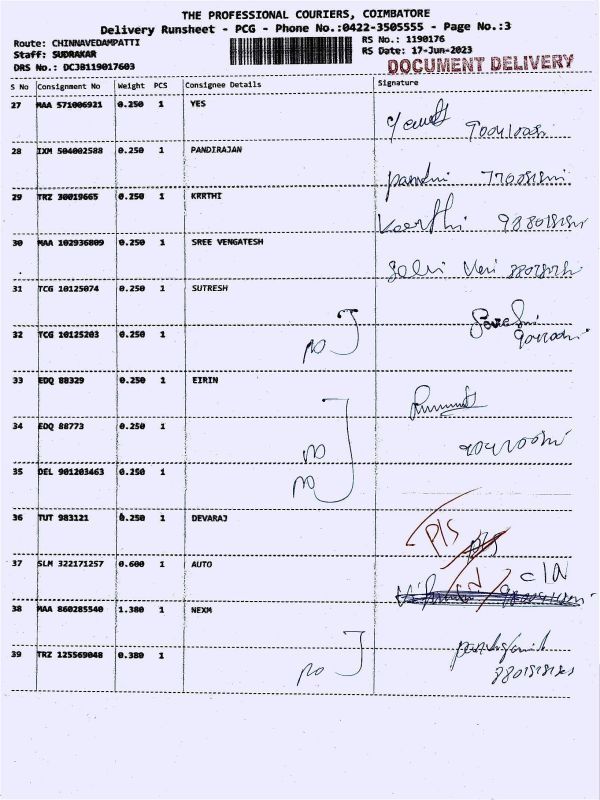 THE PROFESSIONAL COURIERS, COIMBATORE
Delivery Runsheet - PCG - Phone No.:0422-3505555 - Page No.:3
Route: CHINNAVEDAMPATTI
Staff: SUDRAKAR
DRS No.: DCJB119017603
RS No.: 1190176
RS Date: 17-Jun-2023
DOCUMENT DELIVERY
S No Consignment No Weight PCS Consignee Details Signature
27 MAA 571006921 0.250 1 YES
28 IXM 504002588 0.250 1 PANDIRAJAN
29 TRZ 30019665 0.250 1 KRRTHI
Keerthi
30 MAA 102936809 0.250 1 SREE VENGATESH
Selvi
31 TCG 10125074 0.250 1 SUTRESH
32 TCG 10125203 0.250 1
no
33 EDQ 88329 0.250 1 EIRIN
34 EDQ 88773 0.250 1
no
35 DEL 901203463 0.250 1
no
36 TUT 983121 0.250 1 DEVARAJ
P/S
37 SLM 322171257 0.600 1 AUTO
C/N
38 MAA 860285540 1.380 1 NEXM
39 TRZ 125569048 0.380 1
no